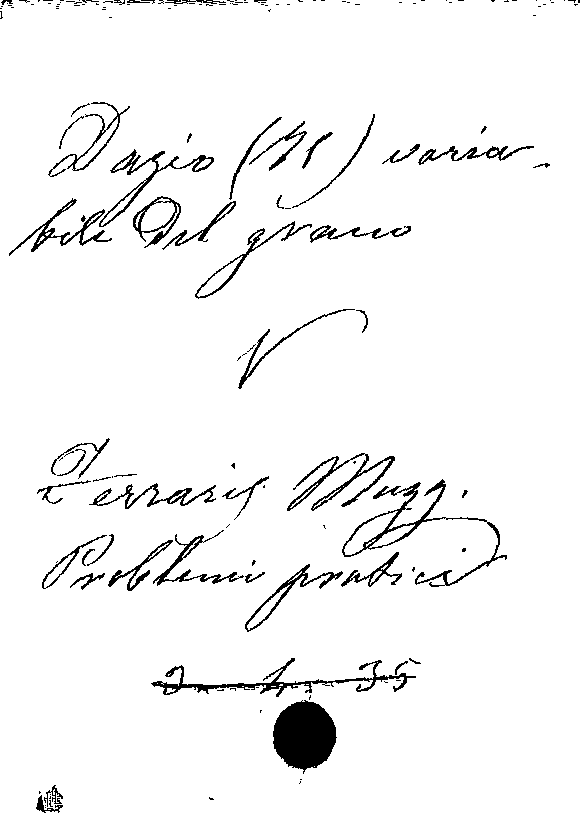 Dazio (Il) varia-
bile del grano
V
Ferraris Magg.
Problemi pratici
2. 4. 35